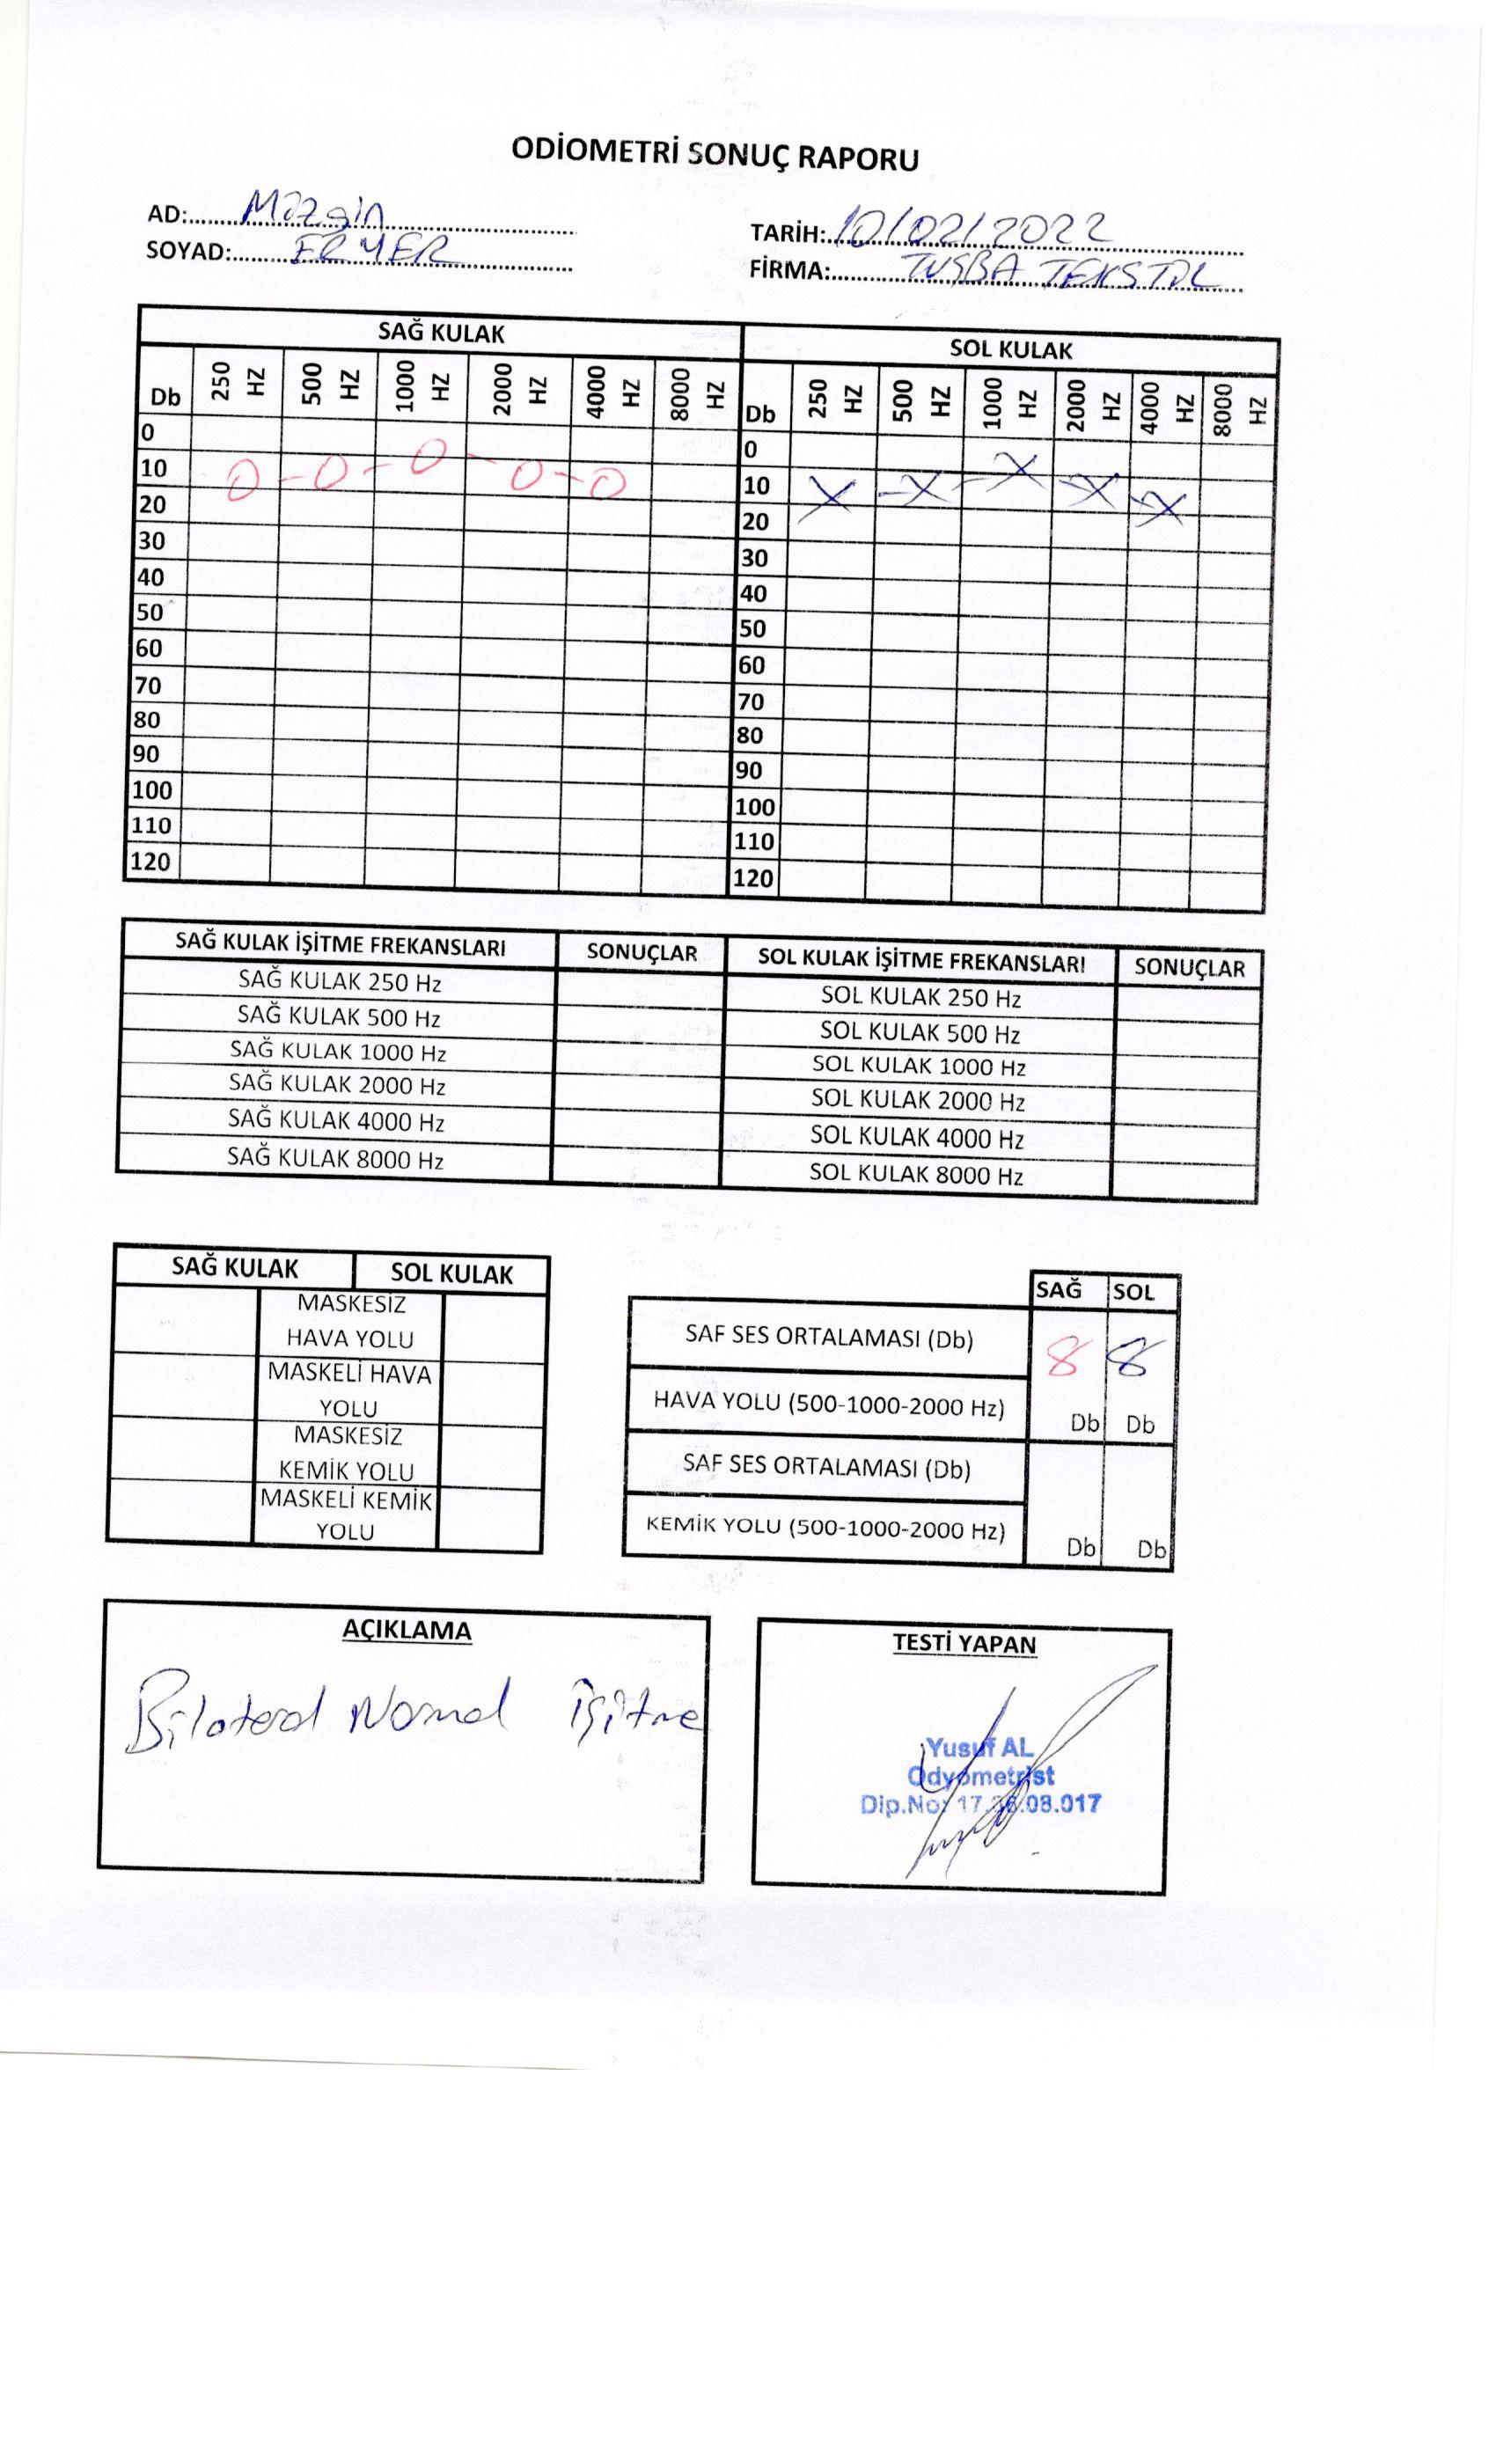 ODİOMETRİ SONUÇ RAPORU
AD: Mizgin
SOYAD: ERYER
TARİH: 10/02/2022
FİRMA: TUŞBA TEKSTİL
SAĞ KULAK SOL KULAK
Db 250 HZ 500 HZ 1000 HZ 2000 HZ 4000 HZ 8000 HZ Db 250 HZ 500 HZ 1000 HZ 2000 HZ 4000 HZ 8000 HZ
0 0
10 10
20 20
30 30
40 40
50 50
60 60
70 70
80 80
90 90
100 100
110 110
120 120
SAĞ KULAK İŞİTME FREKANSLARI SONUÇLAR SOL KULAK İŞİTME FREKANSLARI SONUÇLAR
SAĞ KULAK 250 Hz SOL KULAK 250 Hz
SAĞ KULAK 500 Hz SOL KULAK 500 Hz
SAĞ KULAK 1000 Hz SOL KULAK 1000 Hz
SAĞ KULAK 2000 Hz SOL KULAK 2000 Hz
SAĞ KULAK 4000 Hz SOL KULAK 4000 Hz
SAĞ KULAK 8000 Hz SOL KULAK 8000 Hz
SAĞ KULAK SOL KULAK
MASKESİZ
HAVA YOLU
MASKELİ HAVA
YOLU
MASKESİZ
KEMİK YOLU
MASKELİ KEMİK
YOLU
SAĞ SOL
SAF SES ORTALAMASI (Db) 8 8
HAVA YOLU (500-1000-2000 Hz) Db Db
SAF SES ORTALAMASI (Db)
KEMİK YOLU (500-1000-2000 Hz) Db Db
AÇIKLAMA
Bilateral Normal işitme
TESTİ YAPAN
Yusuf AL
Odyometrist
Dip.No: 08.017